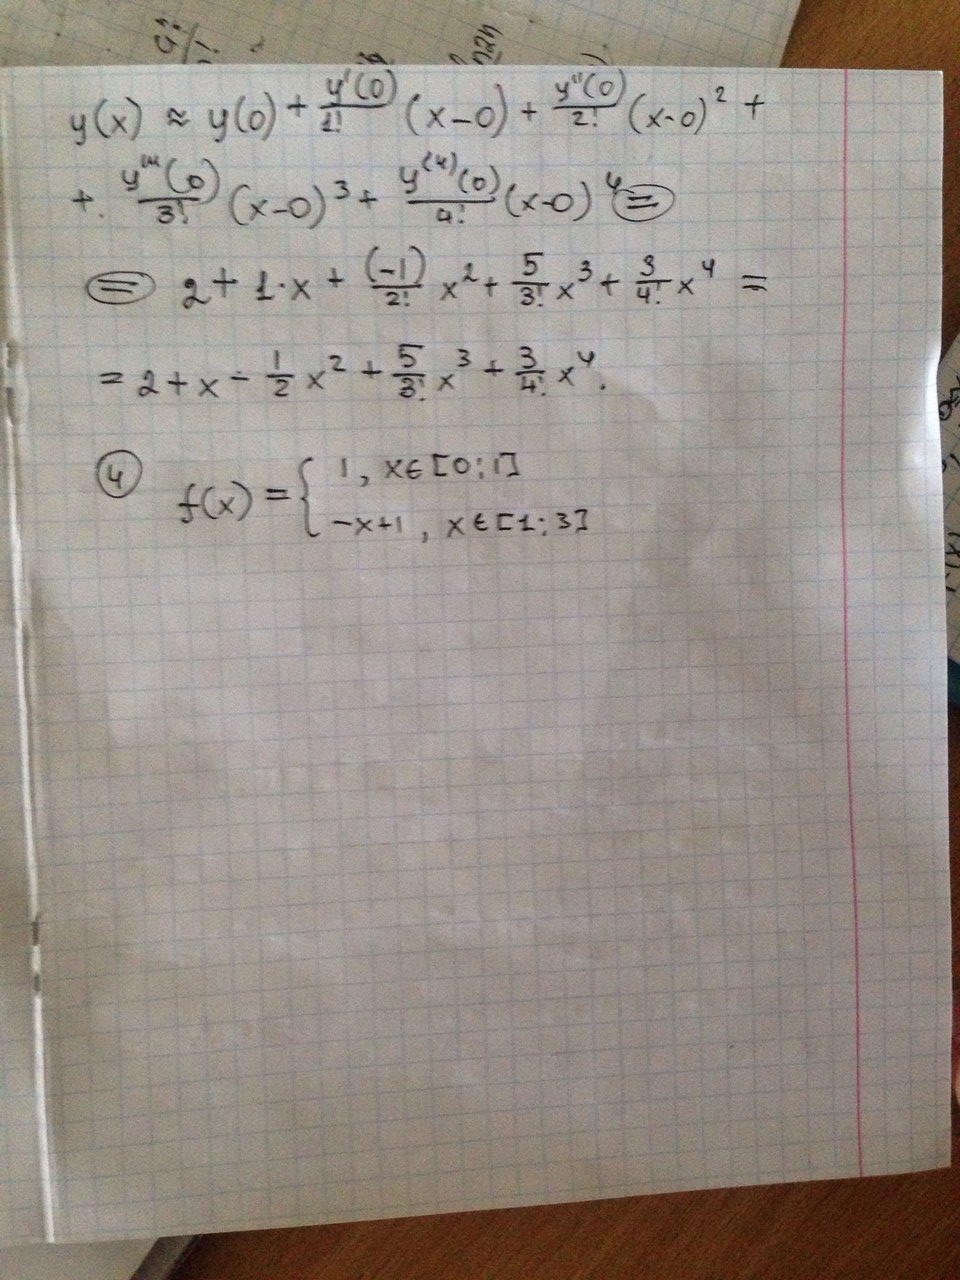 y(x) ≈ y(0) + y'(0)/1! (x-0) + y''(0)/2! (x-0)² +
+. y'''(0)/3! (x-0)³ + y⁽⁴⁾(0)/4! (x-0)⁴ =
= 2 + 1·x + (-1)/2! x² + 5/3! x³ + 3/4! x⁴ =
= 2 + x - 1/2 x² + 5/3! x³ + 3/4! x⁴.
④ f(x) = { 1, x∈[0;1]
-x+1, x∈[1;3]